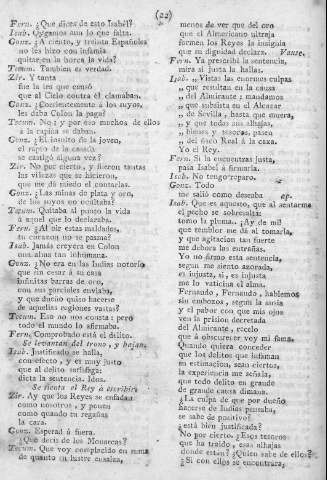 (22)
Fern. ¿Que dices de esto Isabél?
Isab. Oygamos aun lo que falta.
Gonz. ¿A ciento, y treinta Españoles
no les hizo con infamia
quitar en la horca la vida?
Tocum. Tambien es verdad.
Zir. Y tanta
fue la ira que causó
que al Cielo contra él clamaban.
Gonz. ¿Corrientemente á los suyos,
les daba Colon la paga?
Tocum. No; y por eso muchos de ellos
á la rapiña se daban.
Gonz. ¿El insulto de la joven,
el rapto de la cacica
se castigó alguna vez?
Zir. No por cierto, y fueron tantas
las vilezas que se hicieron,
que me dá miedo el contarlas.
Gonz. ¿Las minas de plata y oro,
de los suyos no ocultaba?
Tocum. Quitaba al punto la vida
á aquel que lo declaraba.
Fern. ¿Al oir estas maldades,
tu corazon no se pasma?
Isab. Jamás creyera en Colon
una alma tan inhumana.
Gonz. ¿No era en las Indias notorio
que sin cesar á su casa
infinitas barras de oro,
con sus parciales enviaba,
y que dueño quiso hacerse
de aquellas regiones vastas?
Tocum. Eso no nos consta: pero
todo el mundo lo afirmaba.
Fern. Comprobado está el delito.
Se levantan del trono, y bajan.
Isab. Justificado se halla,
con efecto, y es muy justo
que al delito satisfaga:
dicta la sentencia.
Se sienta el Rey á escribir.
Zir. Ay que los Reyes se enfadan
como nosotros, y ponen
como quando tu regañas
la cara.
Gonz. Esperad á fuera.
¿Que decis de los Monarcas?
Tocum. Que voy complacido en mana
de quanto su lustre ensalza,
menos de ver que del oro
que el Almericano ultraja
formen los Reyes la insignia
que su dignidad declara. Vanse.
Fern. Ya prescribí la sentencia,
mira si justa la hallas.
Isab. „Vistas las enormes culpas
„ que resultan en la causa
„ del Almirante; mandamos
„ que subsista en el Alcazar
„ de Sevilla, hasta que muera,
„ y que todas sus alhajas,
„ bienes y tesoros, pasen
„ del fisco Real á la caxa.
Yo el Rey.
Fern. Si la encuentras justa,
pasa Isabél á firmarla.
Isab. No tengo reparo.
Gonz. Todo
me salió como deseaba ap.
Isab. Que es aquesto, que al sentarme
el pecho se sobresalta:
tomo la pluma.. ¡Ay de mí!
que temblor me dá al tomarla,
y que agitacion tan fuerte
me devora las entrañas.
Yo no firmo esta sentencia,
segun me siento anorada,
es injusta, si, es injusta
me lo vaticina el alma.
Fernando, Fernando, hablemos
sin embozos, segun la ansia
y el pabor con que mis ojos
ven la prision decretada
del Almirante, rezelo
que á obscurecer voy mi fama.
Quando quiera conceder
que los delitos que infaman
mi estimacion, sean ciertos,
la experiencia me señala,
que todo delito en grande
de grande causa dimana.
¿La culpa de que por dueño
hacerse de Indias pensaba,
se sabe de positivo?
¿está bien justificada?
No por cierto. ¿Esos tesoros
que ha traido, esas alhajas
donde estan? ¿Quien sabe de ellos?
¿Si con ellos se encontrara,